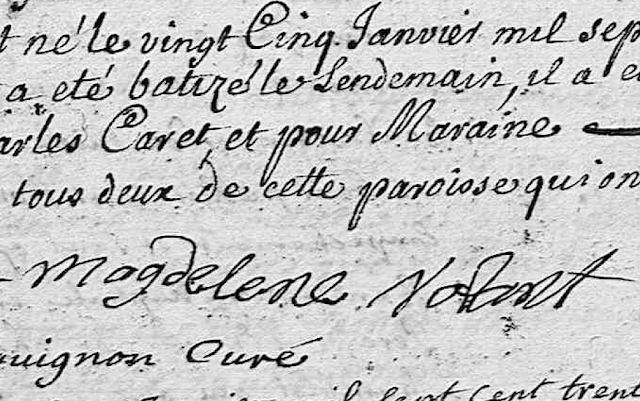 t né le vingt Cinq Janvier mil sep
a eté batizé le Lendemain, il a e
arles Caret et pour Maraine
tous deux de cette paroisse qui on
magdelene
uignon Curé
sept cent trent